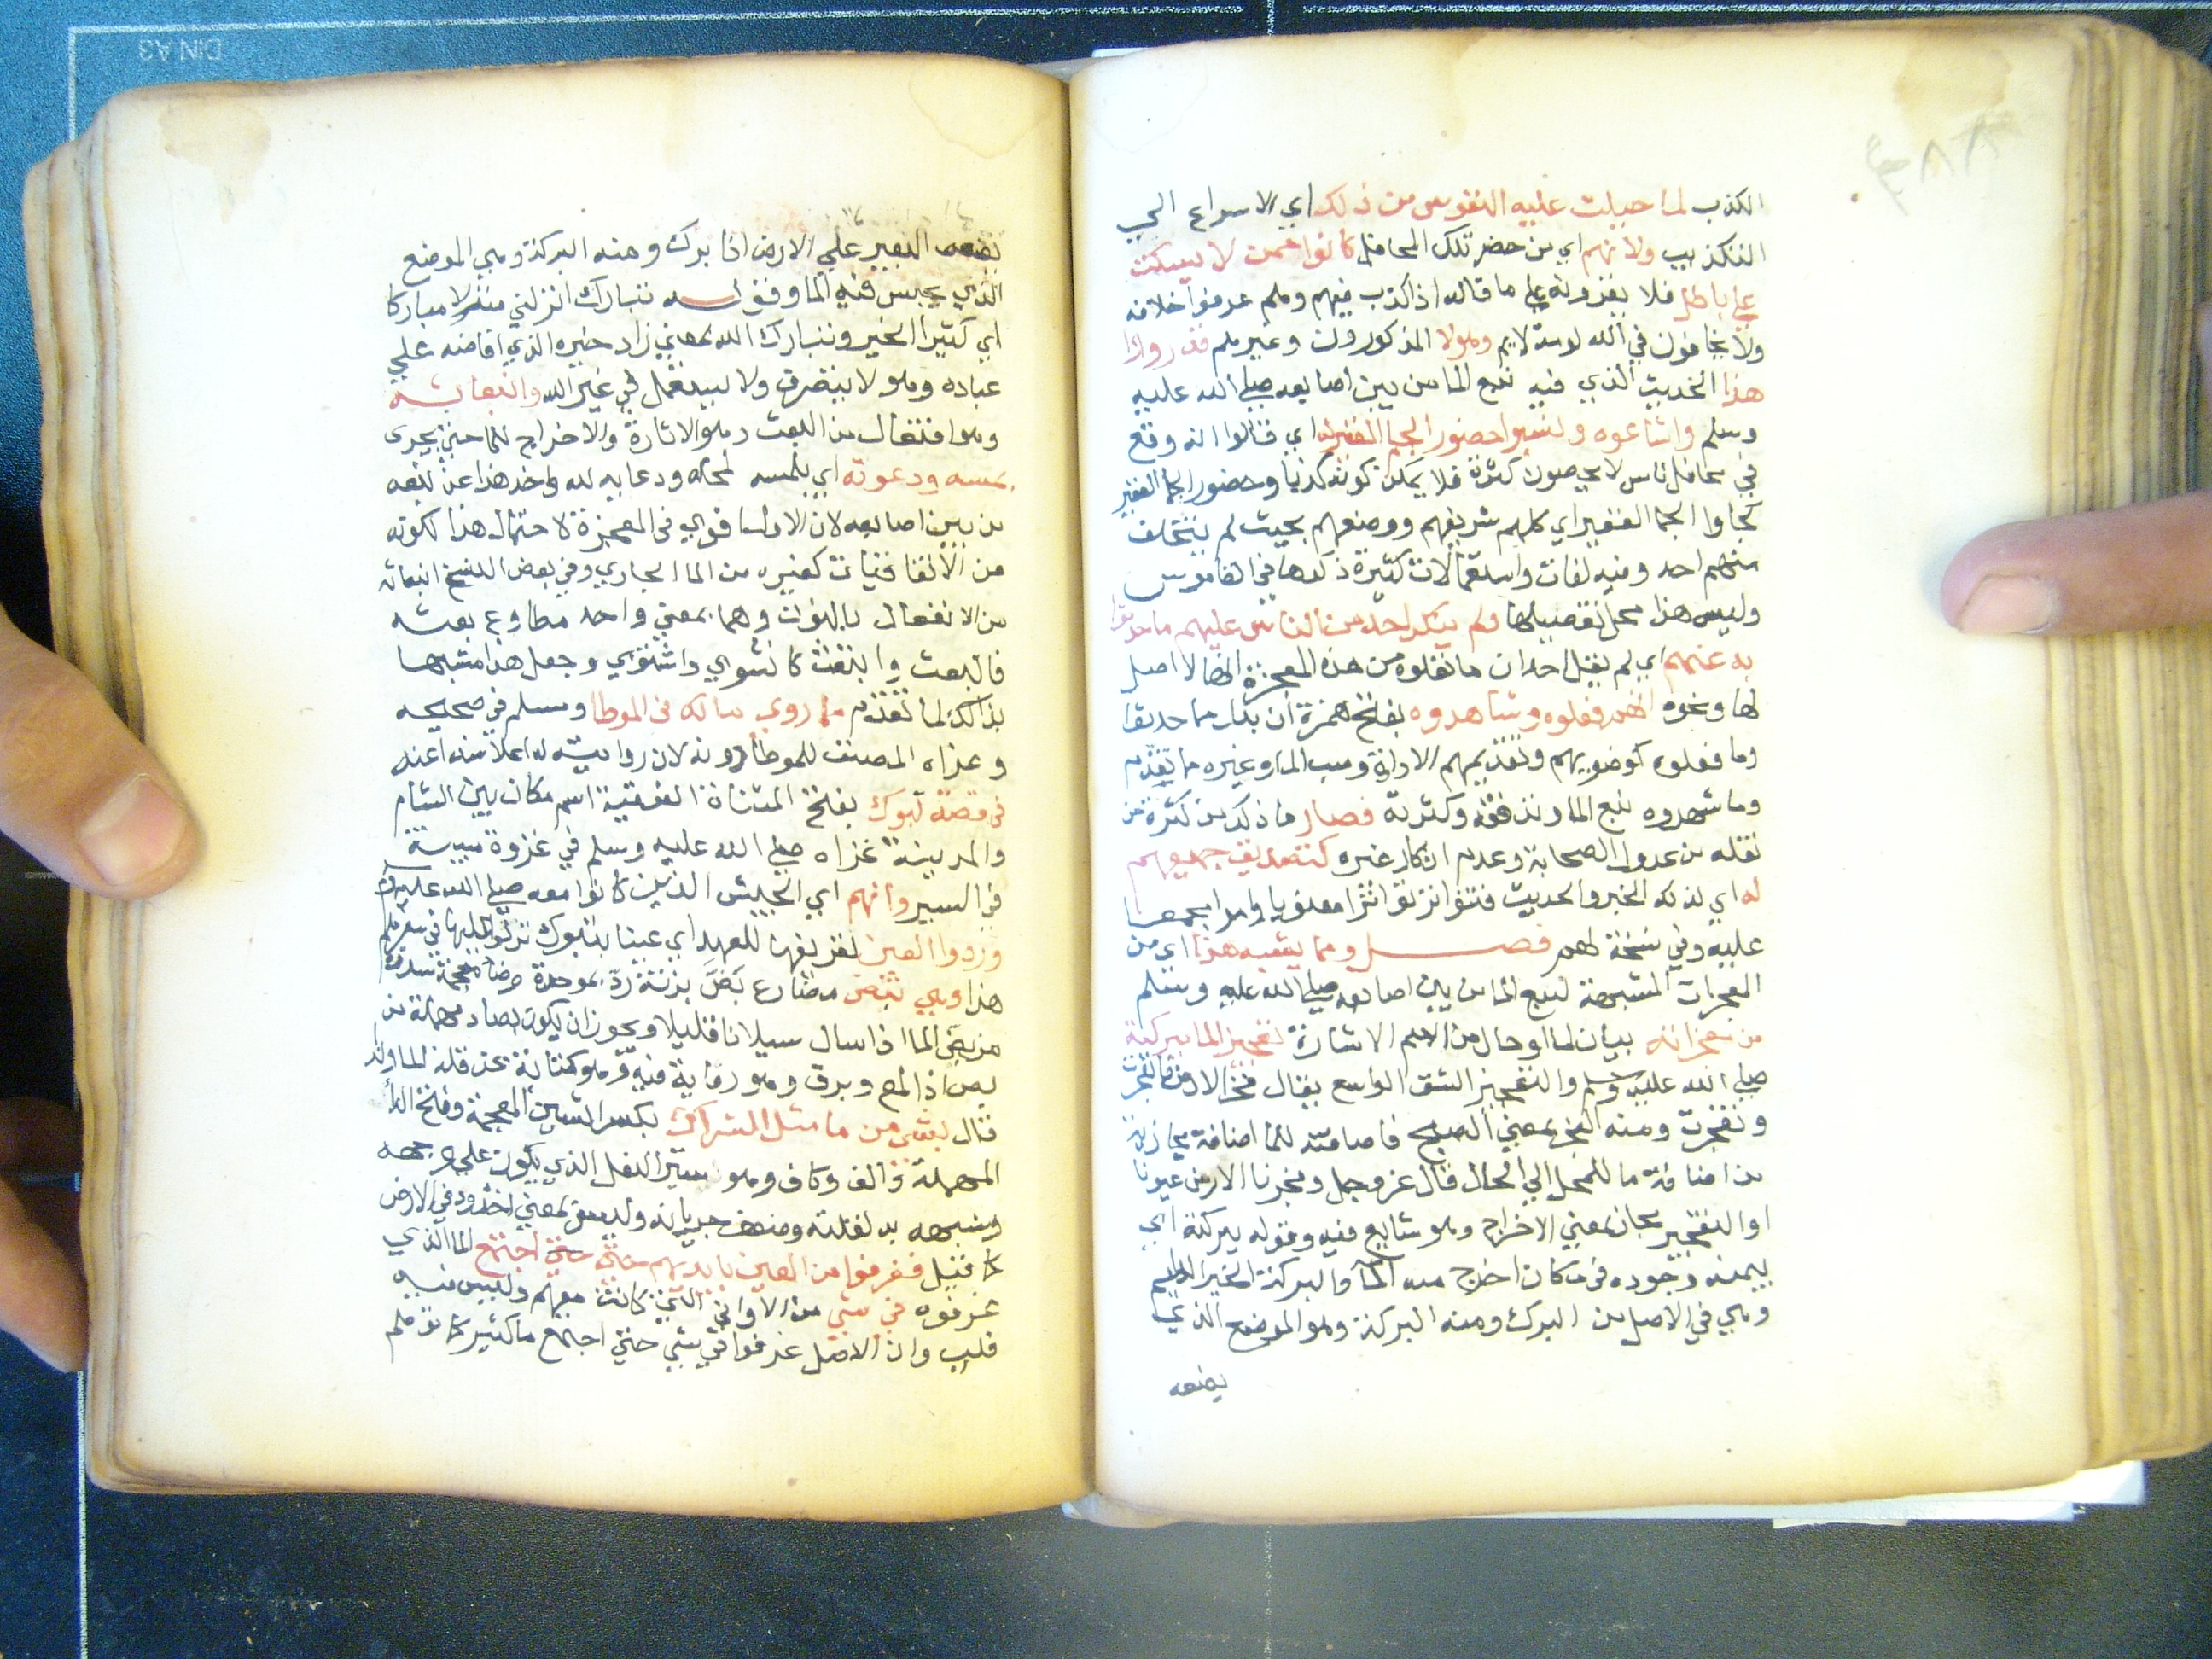 الكذب لما جبلت عليه النفوس من ذلك اي الاسراع الي
التكذيب ولانهم اي من حضر تلك المحافل كانوا ممن لا يسكت
علي باطل فلا يقرونه علي ما قاله اذا كذب فيهم وهم عرفوا خلافه
ولا يخافون في الله لومة لايم وهولا المذكورون وغيرهم قد رووا
هذا الحديث الذي فيه نبع الما من بين اصابعه صلي الله عليه
وسلم واشاعوه ونسبوا حضور الجما الغفير له اي قالوا انه وقع
في محافل ناس لا يحصون كثرة فلا يمكن كونه كذبا وحضور الجما الغفير
كجاوا الجما الغفير اي كلهم شريفهم ووضيعهم بحيث لم يتخلف
منهم احد وفيه لغات واستعمالات كثيرة ذكرها في القاموس
وليس هذا محل تفصيلها ولم ينكر احد من الناس عليهم ما حدثوا
به عنهم اي لم يقل احد ان ما نقلوه من هذه المعجزة انها لا اصل
لها ونحوه انهم فعلوه وشاهدوه بفتح همزة ان بدل مما حدثوا
وما فعلوه كوضويهم وتقديمهم الاداوة وصب الما وغيره مما تقدم
وما شهدوه نبع الما وتدفقه وكثرته فصار ما ذكر من كثرة من
نقله من عدول الصحابة وعدم انكار غيره كتصديق جميعهم
له اي لذلك الخبر والحديث فتواتر تواترا معنويا وهو مجمعا
عليه وفي نسخة لهم فصل ومما يشبه هذا اي من
المعجزات المشبهة لنبع الما من بين اصابعه صلي الله عليه وسلم
من معجزاته بيان لما او حال من اسم الاشارة تفجير الما ببركته
صلي الله عليه وسلم والتفجير الشق الواسع يقال فجر الارض فانفجرت
وتفجرت ومنه الفجر بمعني الصبح فاضافته للما اضافة مجازية
من اضافة ما للمحل الي الحال قال عز وجل وفجرنا الارض عيونا
او التفجير مجاز بمعني الاخراج وهو شايع فيه وقوله ببركته اي
بيمنه وجوده في مكان اخرج منه الما والبركة الخير الدايم
وهي في الاصل من البرك ومنه البركة وهو الموضع الذي
يضعه
يضعه البعير علي الارض اذا برك ومنه البركة وهي الموضع
الذي يحبس فيه الما وقوله تبارك انزلني منزلا مباركا
اي كثير الخير وتبارك الله بمعني زاد خيره الذي افاضه علي
عباده وهو لا يتصرف ولا يستعمل في غير الله وانبعاثه
وهو افتعال من البعث وهو الاثارة والاخراج للما حتي يجري
بمسه ودعوته اي بلمسه لمحله ودعايه لله واخر هذا عن نبعه
من بين اصابعه لان الاول اقوي في المعجزة لاحتمال هذا لكونه
من الاتفاقيات كغيره من الما الجاري وفي بعض النسخ انبعاثه
من الانفعال بالنون وهما بمعني واحد مطاوع بعثه
فانبعث وابتعث كانشوي واشتوي وجعل هذا مشبها
بذاك لما تقدم مما روي مالك في الموطا ومسلم في صحيحه
وعزاه المصنف للموطا دونه لان روايته له اعلا سندا عنه
في قصة تبوك بفتح المثناة الفوقية اسم مكان بين الشام
والمدينة غزاه صلي الله عليه وسلم في غزوة مبينة
في السير وانهم اي الجيش الذين كانوا معه صلي الله عليه وسلم
وردوا العين تعريفها للعهد اي عينا بتبوك نزلوا عليها في سفرهم
هذا وهي تبض مضارع بض بزنة رد بموحدة وضاد معجمة مشددة
من بض الما اذا سال سيلانا قليلا ويجوز ان يكون بصاد مهملة من
بص اذا لمع وبرق وهو رواية فيه وهو كناية عن قلة الما ولذا
قال بشي من ما مثل الشراك بكسر الشين المعجمة وفتح الرا
المهملة والف وكاف وهو سير النعل الذي يكون علي وجهه
وشبهه به لقلته وضعف جريانه وليس بمعني اخدود في الارض
كما قيل فغرفوا من العين بايديهم حتي اجتمع الما الذي
غرفوه في شي من الاواني التي كانت معهم وليس فيه
قلب وان الاصل غرفوا في شي حتي اجتمع ما كثير كما توهم